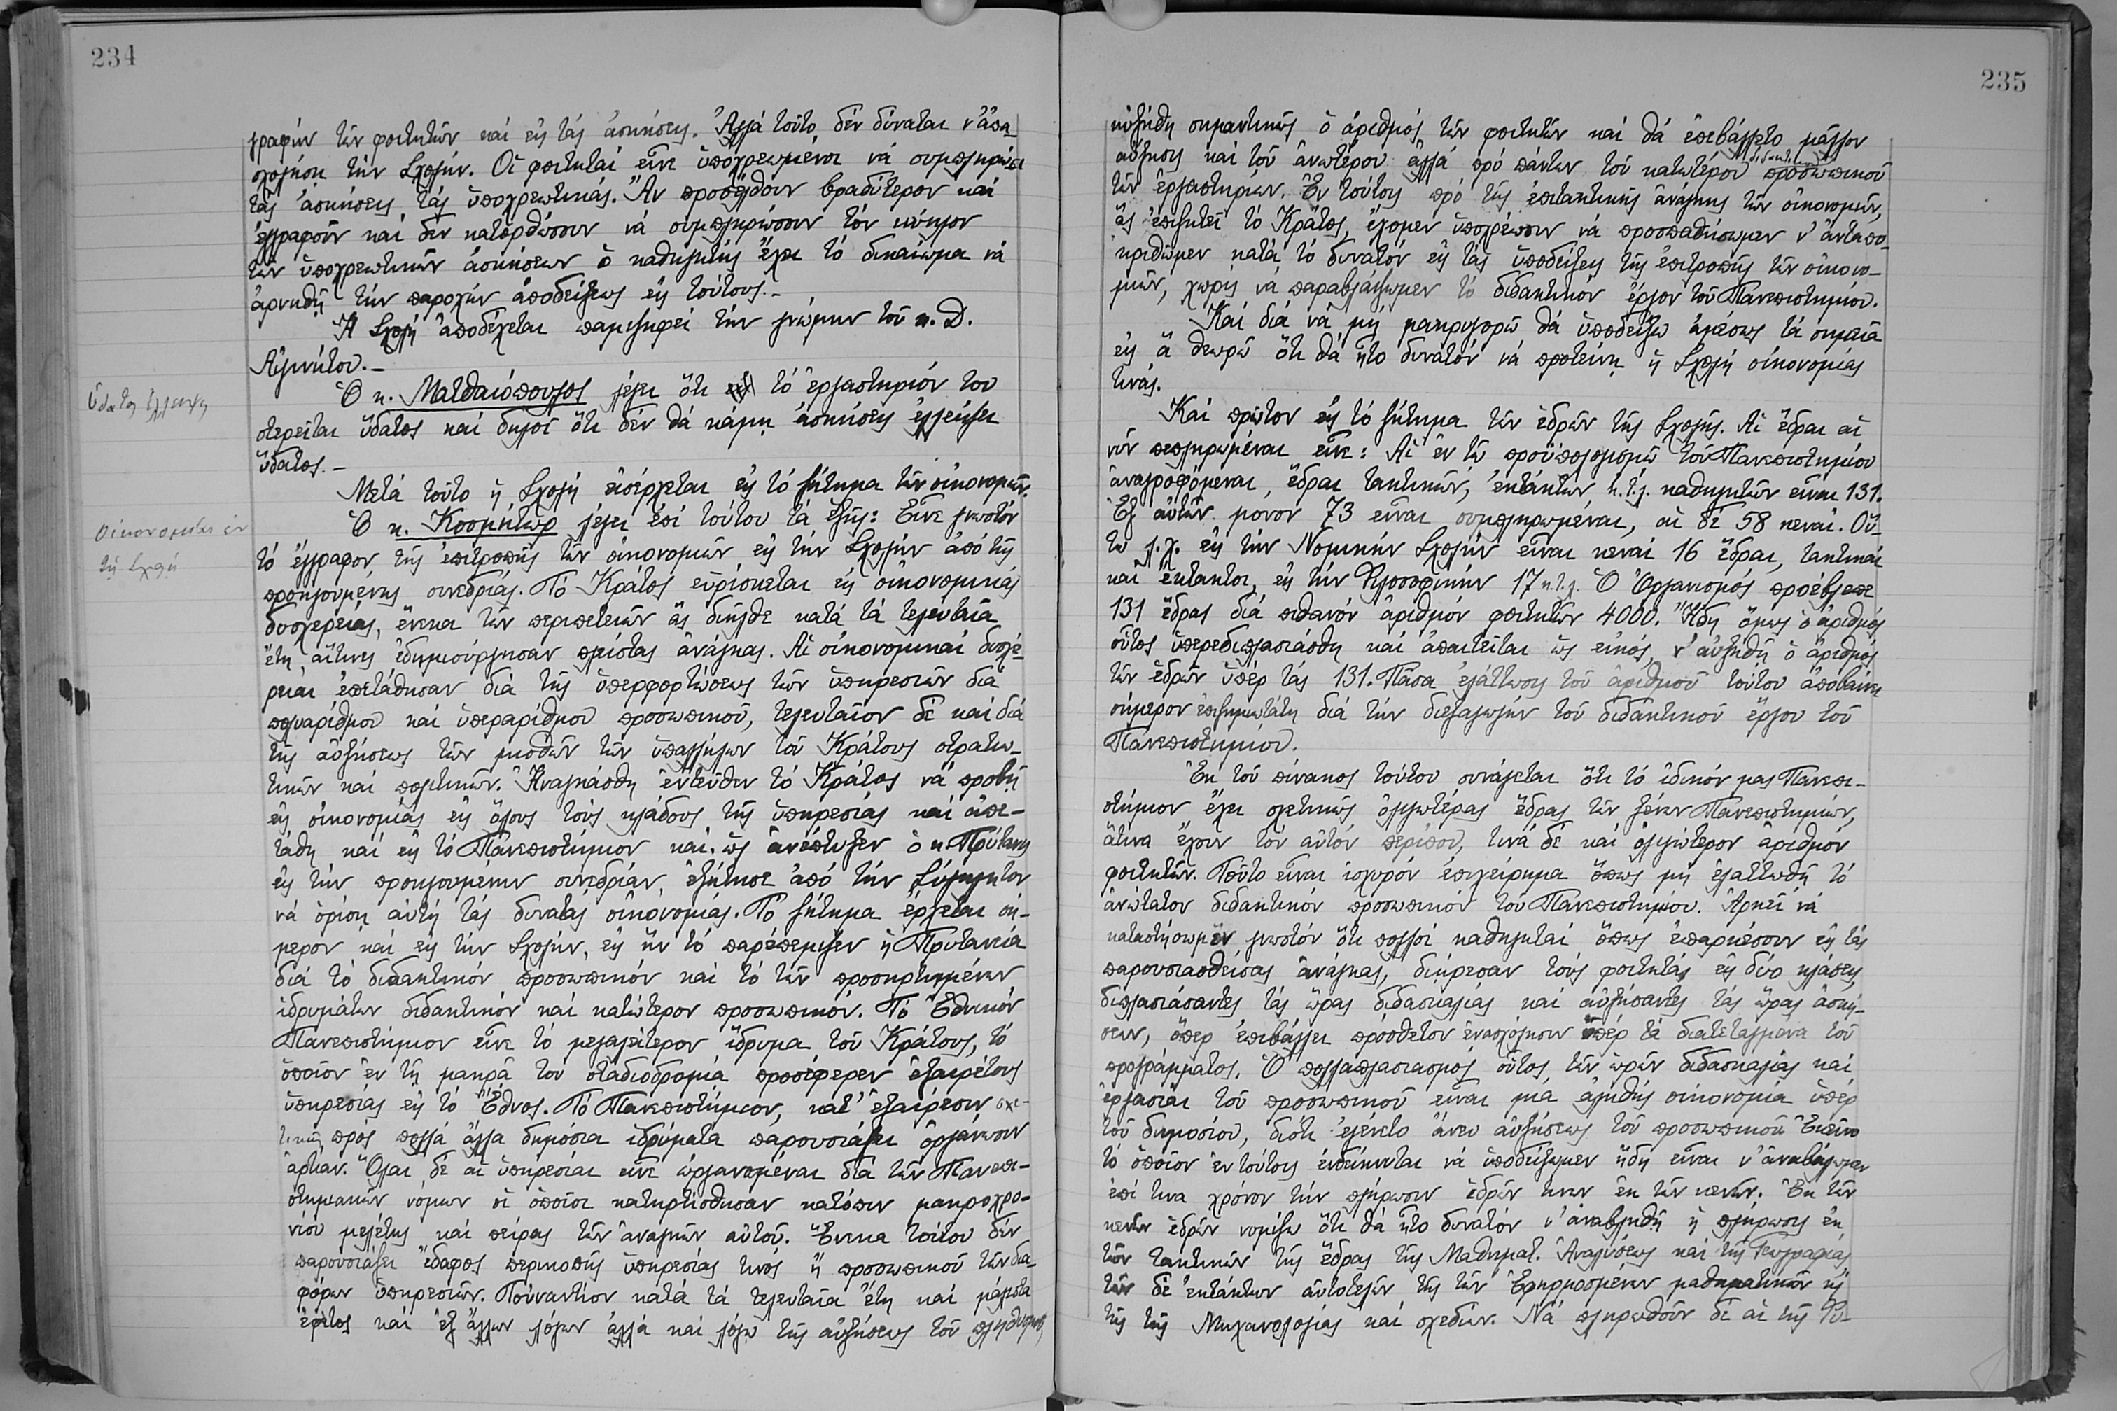 234
γραφήν τῶν φοιτητῶν καί εἰς τάς ἀσκήσεις. Ἀλλά τοῦτο δέν δύναται ν' ἀπα
σχολήση τήν Σχολήν. Οἱ φοιτηταί εἶνε ὑποχρεωμένοι νά συμπληρώσ
τάς ἀσκήσεις τάς ὑποχρεωτικάς. Ἄν προσέλθουν βραδύτερον καί
ἐγγραφοῦν καί δέν κατορθώσουν νά συμπληρώσουν τόν κύκλον
τῶν ὑποχρεωτικῶν ἀσκήσεων ὁ καθηγητής ἔχει τό δικαίωμα νά
ἀρνηθῇ τήν παροχήν ἀποδείξεως εἰς τούτους.-
Ἡ Σχολή ἀποδέχεται παμψηφεί τήν γνώμην τοῦ κ. Δ.
Αἰγινήτου.-
ὕδατος ἔλλειψη
Ὁ κ. Ματθαιόπουλος λέγει ὅτι τό ἐργαστηριόν του
στερεῖται ὕδατος καί δηλοῖ ὅτι δέν θά κάμη ἀσκήσεις ἐλλείψει
ὕδατος.-
Μετά τοῦτο ἡ Σχολή εἰσέρχεται εἰς τό ζήτημα τῶν οἰκονομιῶν.
οἰκονομίαι ἐν
τῇ Σχολῇ
Ὁ κ. Κοσμήτωρ λέγει ἐπί τούτου τά ἑξῆς: Εἶνε γνωστόν
τό ἔγγραφον τῆς ἐπιτροπῆς τῶν οἰκονομιῶν εἰς τήν Σχολήν ἀπό τῆς
προηγουμένης συνεδρίας. Τό Κράτος εὑρίσκεται εἰς οἰκονομικάς
δυσχερείας, ἕνεκα τῶν περιπετειῶν ἅς διῆλθε κατά τά τελευταῖα
ἔτη, αἵτινες ἐδημιούργησαν πλείστας ἀνάγκας. Αἱ οἰκονομικαί δυσχέ-
ρειαι ἐπετάθησαν διά τῆς ὑπερφορτώσεως τῶν ὑπηρεσιῶν διά
πολυαρίθμου καί ὑπεραρίθμου προσωπικοῦ, τελευταῖον δέ καί διά
τῆς αὐξήσεως τῶν μισθῶν τῶν ὑπαλλήλων τοῦ Κράτους στρατιω-
τικῶν καί πολιτικῶν. Ἠναγκάσθη ἐντεῦθεν τό Κράτος νά προβῇ
εἰς οἰκονομίας εἰς ὅλους τούς κλάδους τῆς ὑπηρεσίας καί ἀπε-
τάθη καί εἰς τό Πανεπιστήμιον καί, ὡς ἀνέπτυξεν ὁ κ. Πρύτανις
εἰς τήν προηγουμένην συνεδρίαν, ἐζήτησε ἀπό τήν Σύγκλητον
νά ὁρίσῃ αὐτή τάς δυνατάς οἰκονομίας. Τό ζήτημα ἔρχεται σή-
μερον καί εἰς τήν Σχολήν, εἰς ἥν τό παρέπεμψεν ἡ Πρυτανεία
διά τό διδακτικόν προσωπικόν καί τό τῶν προσηρτημένων
ἱδρυμάτων διδακτικόν καί κατώτερον προσωπικόν. Τό Ἐθνικόν
Πανεπιστήμιον εἶνε τό μεγαλείτερον ἵδρυμα τοῦ Κράτους, τό
ὁποῖον ἐν τῇ μακρᾷ του σταδιοδρομίᾳ προσέφερεν ἐξαιρέτους
ὑπηρεσίας εἰς τό Ἔθνος. Τό Πανεπιστήμιον, κατ' ἐξαίρεσιν σχε-
τικῶς πρός πολλά ἄλλα δημόσια ἱδρύματα παρουσιάζει ὀργάνωσιν
ἀρτίαν. Ὅλαι δέ αἱ ὑπηρεσίαι εἶνε ὠργανωμέναι διά τῶν Πανεπι-
στημιακῶν νόμων οἱ ὁποῖοι κατηρτίσθησαν κατόπιν μακροχρο-
νίου μελέτης καί πείρας τῶν ἀναγκῶν αὐτοῦ. Ἕνεκα τούτου δέν
παρουσιάζει ἔδαφος περικοπῆς ὑπηρεσίας τινός ἤ προσωπικοῦ τῶν δια-
φόρων ὑπηρεσιῶν. Τοὐναντίον κατά τά τελευταῖα ἔτη καί μάλιστα
ἐφέτος καί ἐξ ἄλλων λόγων ἀλλά καί λόγῳ τῆς αὐξήσεως τοῦ πληθυσμοῦ,
235
ηὐξήθη σημαντικῶς ὁ ἀριθμός τῶν φοιτητῶν καί θά ἐπεβάλλετο μᾶλλον
αὔξησις καί τοῦ ἀνωτέρου ἀλλά πρό πάντων τοῦ κατωτέρου προσωπικοῦ
τῶν ἐργαστηρίων. Ἐν τούτοις πρό τῆς ἐπιτακτικῆς ἀνάγκης τῶν οἰκονομιῶν,
ἅς ἐπιζητεῖ τό Κράτος, ἔχομεν ὑποχρέωσιν νά προσπαθήσωμεν ν' ἀνταπο-
κριθῶμεν κατά τό δυνατόν εἰς τάς ὑποδείξεις τῆς ἐπιτροπῆς τῶν οἰκονο-
μιῶν, χωρίς νά παραβλάψωμεν τό διδακτικόν ἔργον τοῦ Πανεπιστημίου.
Καί διά νά μή μακρηγορῶ θά ὑποδείξω ἀμέσως τά σημεῖα
εἰς ἅ θεωρῶ ὅτι θά ἦτο δυνατόν νά προτείνῃ ἡ Σχολή οἰκονομίας
τινάς.
Καί πρῶτον εἰς τό ζήτημα τῶν ἑδρῶν τῆς Σχολῆς. Αἱ ἕδραι αἱ
νῦν πεπληρωμέναι εἶνε: Αἱ ἐν τῷ προϋπολογισμῷ τοῦ Πανεπιστημίου
ἀναγραφόμεναι ἕδραι τακτικῶν, ἐκτάκτων κ.τ.λ. καθηγητῶν εἶναι 131.
Ἐξ αὐτῶν μόνον 73 εἶναι συμπληρωμέναι, αἱ δέ 58 κεναί. Οὕ-
τω λ.χ. εἰς τήν Νομικήν Σχολήν εἶναι κεναί 16 ἕδραι, τακτικαί
καί ἔκτακτοι, εἰς τήν Φιλοσοφικήν 17 κ.τ.λ. Ὁ Ὀργανισμός προέβλεπε
131 ἕδρας διά πιθανόν ἀριθμόν φοιτητῶν 4000. Ἤδη ὅμως ὁ ἀριθμός
οὗτος ὑπερεδιπλασιάσθη καί ἀπαιτεῖται ὡς εἰκός, ν' αὐξηθῇ ὁ ἀριθμός
τῶν ἑδρῶν ὑπέρ τάς 131. Πᾶσα ἐλάττωσις τοῦ ἀριθμοῦ τούτου ἀποβαίνει
σήμερον ἐπιζημιωτάτη διά τήν διεξαγωγήν τοῦ διδακτικοῦ ἔργου τοῦ
Πανεπιστημίου.
Ἐκ τοῦ πίνακος τούτου συνάγεται ὅτι τό ἰδικόν μας Πανεπι-
στήμιον ἔχει σχετικῶς ὀλιγωτέρας ἕδρας τῶν ξένων Πανεπιστημίων,
ἅτινα ἔχουν τόν αὐτόν περίπου, τινά δέ καί ὀλιγώτερον ἀριθμόν
φοιτητῶν. Τοῦτο εἶναι ἰσχυρόν ἐπιχείρημα ὅπως μή ἐλαττωθῇ τό
ἀνώτατον διδακτικόν προσωπικόν τοῦ Πανεπιστημίου. Ἀρκεῖ νά
καταστήσωμεν γνωστόν ὅτι πολλοί καθηγηταί ὅπως ἐπαρκέσουν εἰς τάς
παρουσιασθείσας ἀνάγκας, διῄρεσαν τούς φοιτητάς εἰς δύο κλάσεις,
διπλασιάσαντες τάς ὥρας διδασκαλίας καί αὐξήσαντες τάς ὥρας ἀσκή-
σεων, ὅπερ ἐπιβάλλει πρόσθετον ἐνασχόλησιν ὑπέρ τά διατεταγμένα τοῦ
προγράμματος. Ὁ πολλαπλασιασμός οὗτος τῶν ὡρῶν διδασκαλίας καί
ἐργασίας τοῦ προσωπικοῦ εἶναι μία ἀληθής οἰκονομία ὑπέρ
τοῦ δημοσίου, διότι ἐγένετο ἄνευ αὐξήσεως τοῦ προσωπικοῦ. Ἐκεῖνο
τό ὁποῖον ἐν τούτοις ἐνδείκνυται νά ὑποδείξωμεν ἤδη εἶναι ν' ἀναβάλωμεν
ἐπί τινα χρόνον τήν πλήρωσιν ἑδρῶν τινων ἐκ τῶν κενῶν. Ἐκ τῶν
κενῶν ἑδρῶν νομίζω ὅτι θά ἦτο δυνατόν ν' ἀναβληθῇ ἡ πλήρωσις ἐκ
τῶν τακτικῶν τῆς ἕδρας τῆς Μαθηματ. Ἀναλύσεως καί τῆς Γεωγραφίας
τῶν δέ ἐκτάκτων αὐτοτελῶν τῆς τῶν Ἐφηρμοσμένων μαθηματικῶν
τῆς τῆς Μηχανολογίας καί σχεδίων. Νά πληρωθοῦν δέ αἱ τῆς